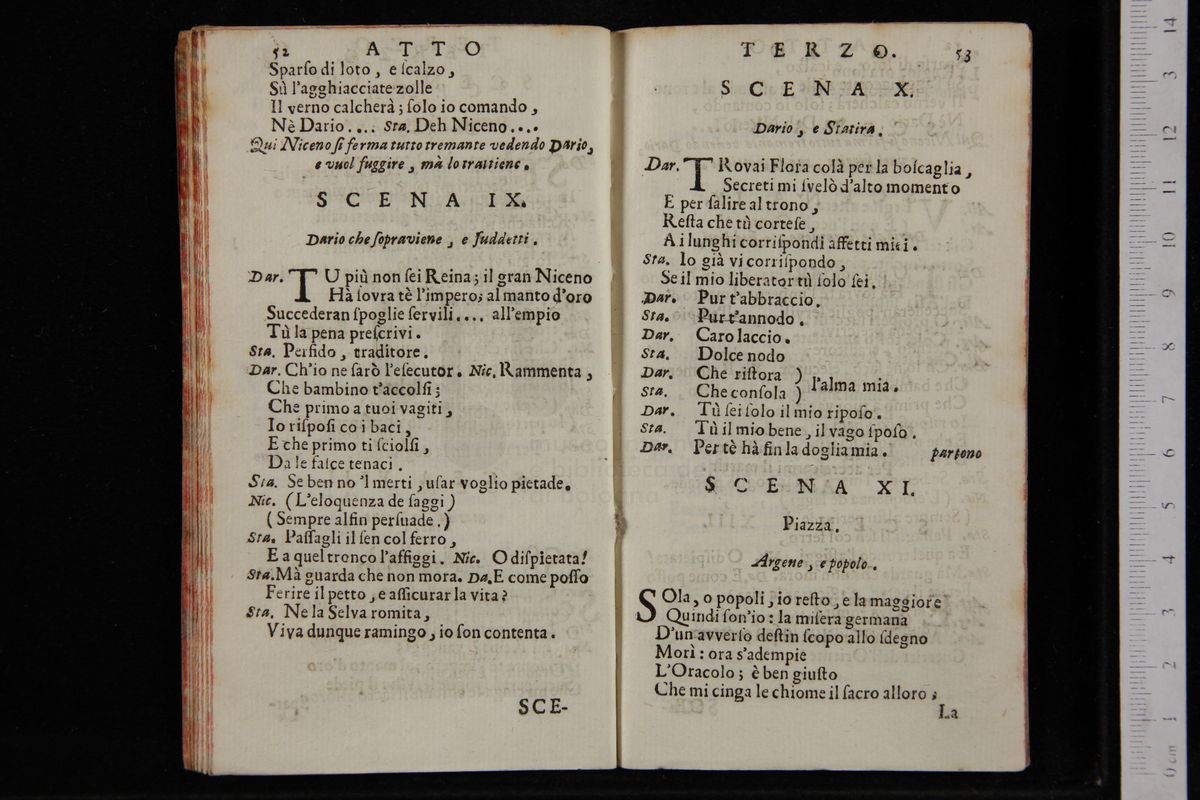 52 ATTO
Sparſo di loto, e ſcalzo,
Sù l'agghiacciate zolle
Il verno calcherà; ſolo io comando,
Nè Dario.... Sta. Deh Niceno....
Qui Niceno ſi ferma tutto tremante vedendo Dario,
e vuol fuggire, mà lo trattiene.
SCENA IX.
Dario che ſopraviene, e ſuddetti.
Dar. TU più non ſei Reina; il gran Niceno
Hà ſovra tè l'impero; al manto d'oro
Succederan ſpoglie ſervili.... all'empio
Tù la pena preſcrivi.
Sta. Perfido, traditore.
Dar. Ch'io ne ſarò l'eſecutor. Nic. Rammenta,
Che bambino t'accolſi;
Che primo a tuoi vagiti,
Io riſpoſi co i baci,
E che primo ti ſciolſi,
Da le faſce tenaci.
Sta. Se ben no 'l merti, uſar voglio pietade.
Nic. (L'eloquenza de ſaggi)
(Sempre alfin perſuade.)
Sta. Paſſagli il ſen col ferro,
E a quel tronco l'affiggi. Nic. O diſpietata!
Sta. Mà guarda che non mora. Da. E come poſſo
Ferire il petto, e aſſicurar la vita?
Sta. Ne la Selva romita,
Viva dunque ramingo, io ſon contenta.
SCE-
TERZO. 53
SCENA X.
Dario, e Statira.
Dar. TRovai Flora colà per la boſcaglia,
Secreti mi ſvelò d'alto momento
E per ſalire al trono,
Reſta che tù corteſe,
A i lunghi corriſpondi affetti miei.
Sta. Io già vi corriſpondo,
Se il mio liberator tù ſolo ſei.
Dar. Pur t'abbraccio.
Sta. Pur t'annodo.
Dar. Caro laccio.
Sta. Dolce nodo
Dar. Che riſtora )
Sta. Che conſola ) l'alma mia.
Dar. Tù ſei ſolo il mio ripoſo.
Sta. Tù il mio bene, il vago ſpoſo.
Dar. Per tè hà fin la doglia mia. partono
SCENA XI.
Piazza.
Argene, e popolo.
SOla, o popoli, io reſto, e la maggiore
Quindi ſon'io: la miſera germana
D'un avverſo deſtin ſcopo allo ſdegno
Morì: ora s'adempie
L'Oracolo; è ben giuſto
Che mi cinga le chiome il ſacro alloro;
La